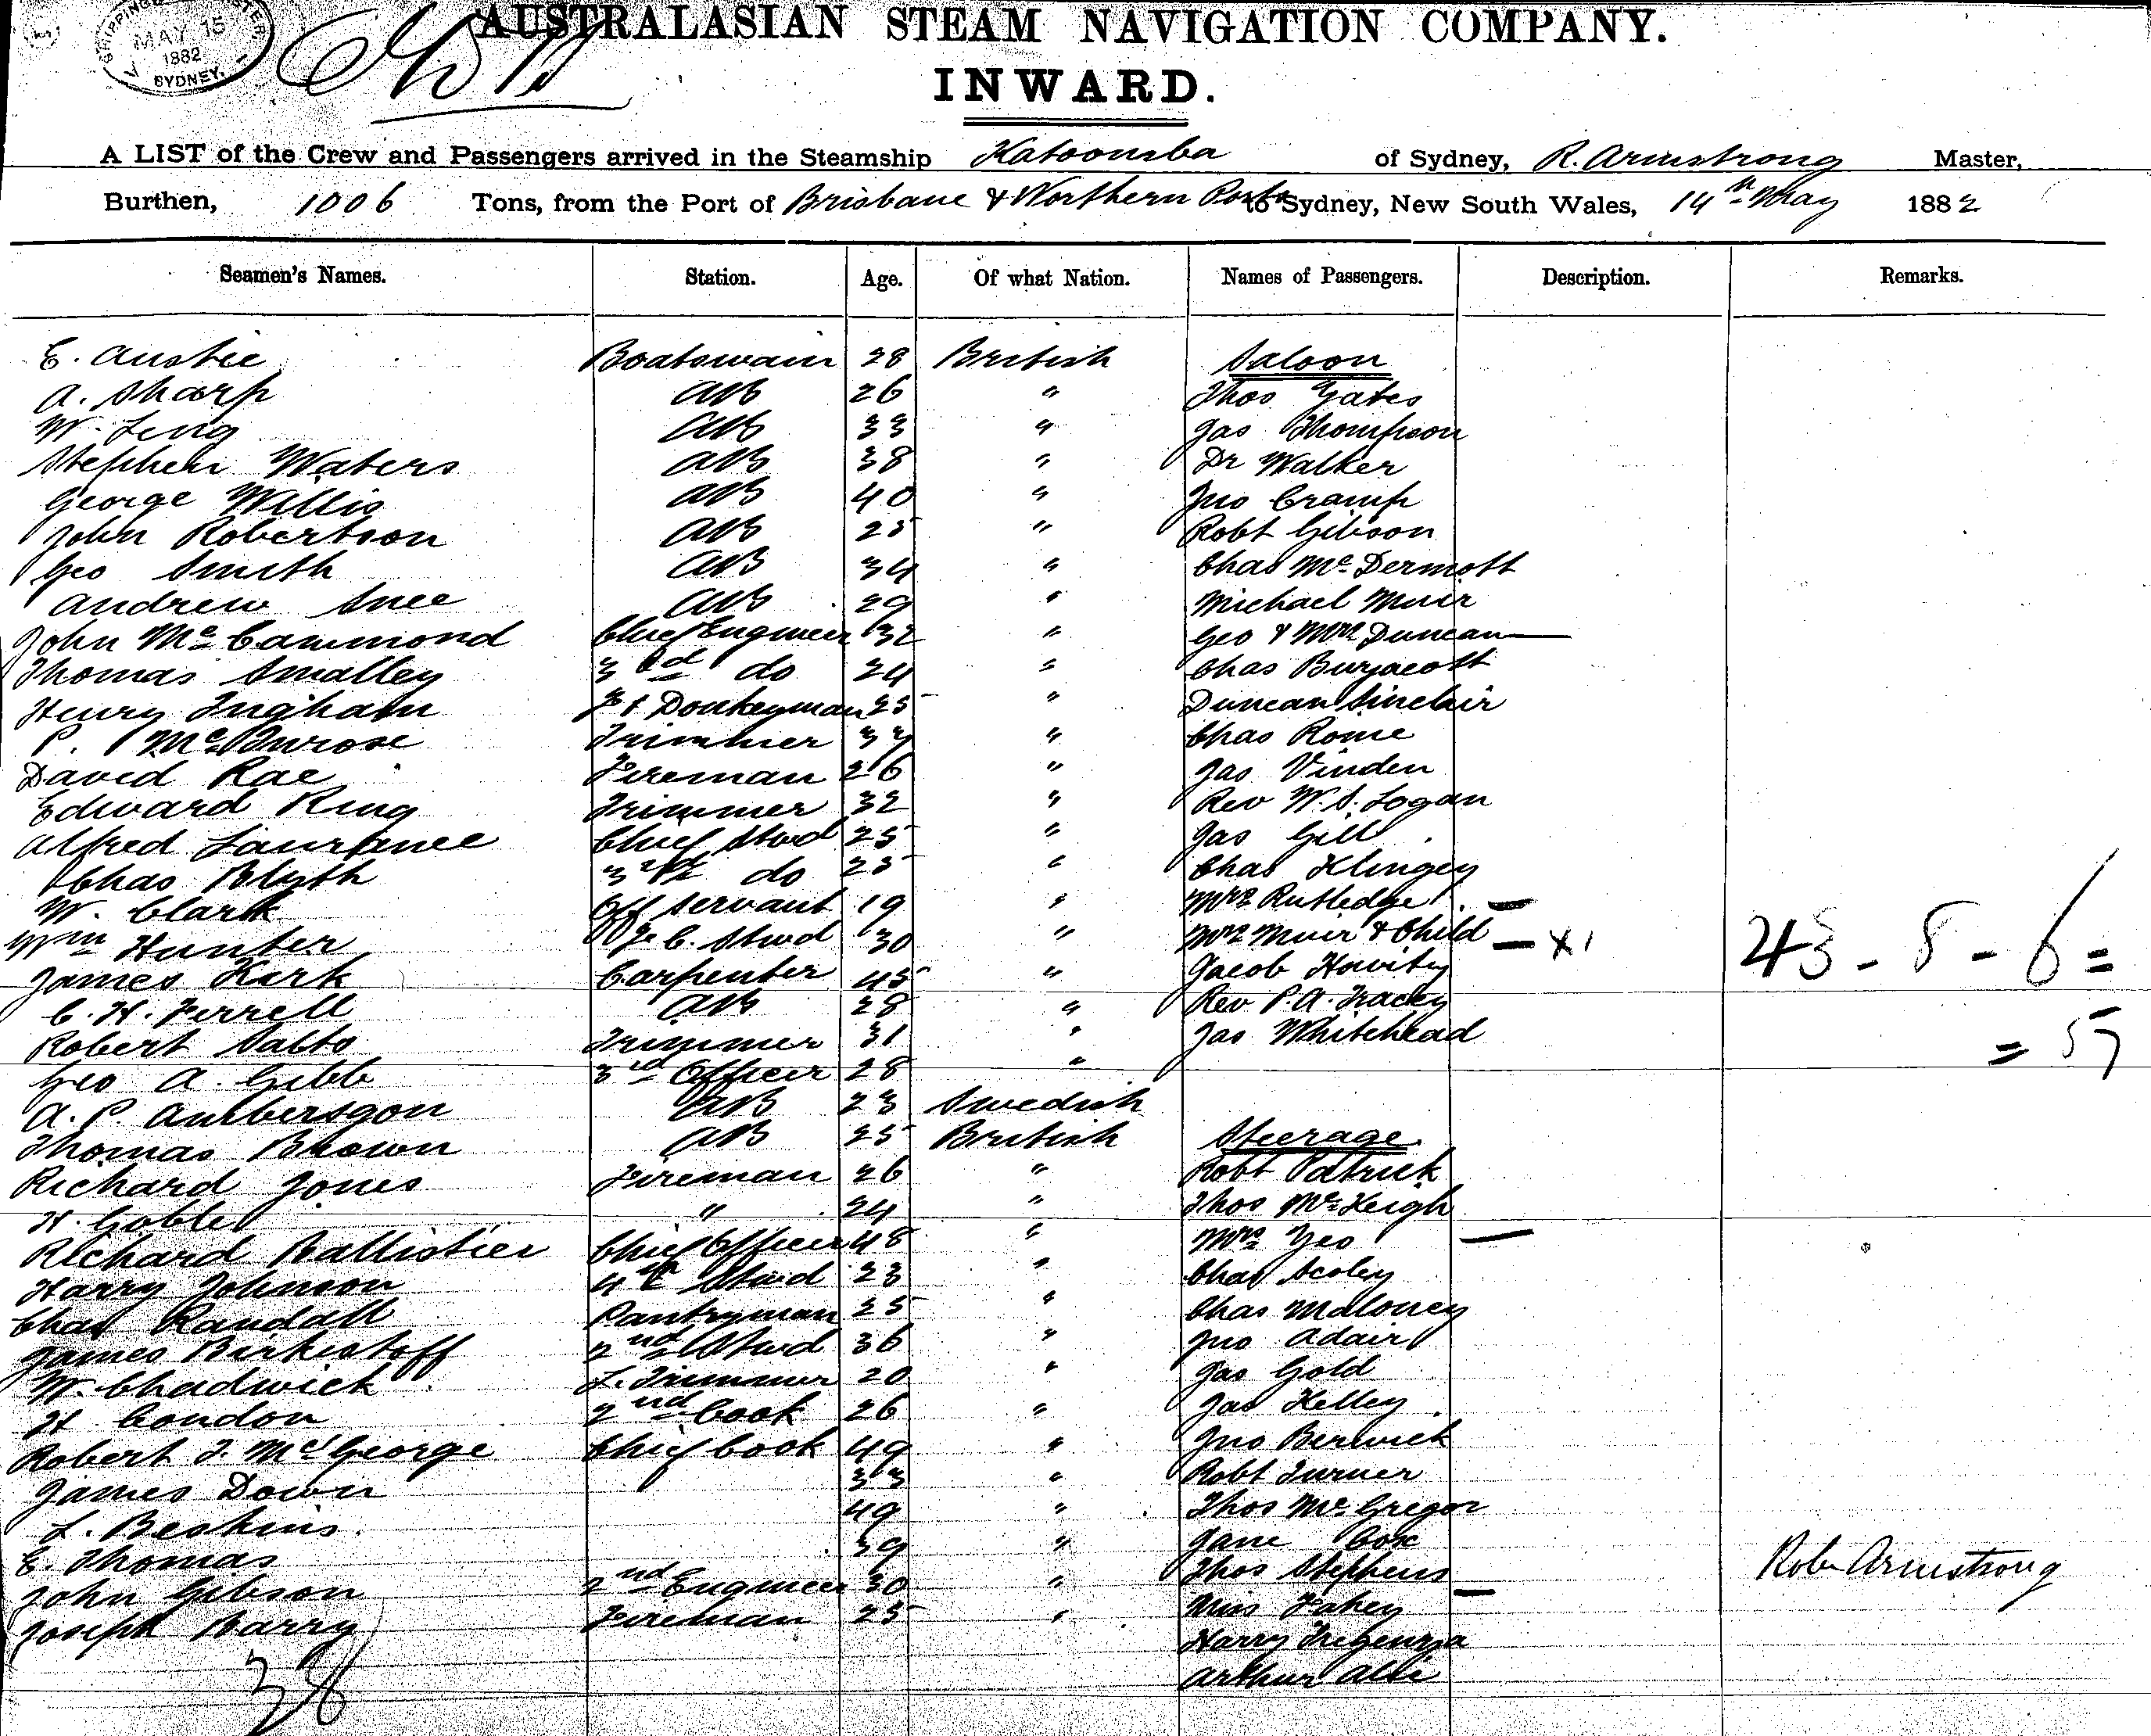 SHIPPING MASTER
MAY 15
1882
SYDNEY.
AUSTRALASIAN STEAM NAVIGATION COMPANY.
INWARD.
A LIST of the Crew and Passengers arrived in the Steamship Katoomba of Sydney, R. Armstrong Master,
Burthen, 1006 Tons, from the Port of Brisbane & Northern Ports to Sydney, New South Wales, 14th May 1882
Seamen's Names. Station. Age. Of what Nation. Names of Passengers. Description. Remarks.
E. Austie Boatswain 28 British Saloon
A. Sharp AB 26 " Thos Yates
W. Leng AB 33 " Jas Thompson
Stephen Waters AB 38 " Dr Walker
George Willis AB 40 " Jno Cramp
John Robertson AB 25 " Robt Gibson
Geo Smith AB 34 " Chas McDermott
Andrew Snee AB 29 " Michael Muir
John McCammond Chief Engineer 32 " Geo & Mrs Duncan —
Thomas Smalley 3rd do 24 " Chas Burjacott
Henry Ingham Donkeyman 25 " Duncan Sinclair
P. Trimmer " Chas Rome
David Rae Fireman 26 " Jas Vinden
Edward King Trimmer 32 " Rev W. S. Logan
Alfred Laurance Chief Stwd 25 " Jas Gill
Chas Blyth 3rd do 25 " Chas Klingey
W. Clark Off servant 19 " Mrs Rutledge —
Wm Hunter F. C. Stwd 30 " Mrs Muir & Child — x1
James Kirk Carpenter 45 " Jacob Howity 43 - 8 - 6 =
C. H. Ferrell AB 28 " Rev P. A. Tracey
Robert Salts Trimmer 31 " Jas Whitehead = 57
Geo A. Gibb 3rd Officer 28 "
A. P. AB 23 Swedish
Thomas Brown AB 25 British Steerage
Richard Jones Fireman 26 " Robt Patrick
H. Goble " 24 " Thos McKeigh
Richard Ballistier Chief Officer 48 " Mrs Yeo —
Harry Johnson 4th Stwd 23 " Chas Scoley
Chas Randall Pantryman 25 " Chas Maloney
James Birkistoff 2nd Stwd 36 " Jno Adair
W. Chadwick F. Trimmer 20 " Jas Gold
H. Condon 2nd Cook 26 " Jas Kelley
Robert J. McGeorge Chief Cook 49 " Jno Berwick
James Down 33 " Robt Turner
L. Beskins. 49 " Thos McGregor
E. Thomas 39 " Jane Cox
John Gibson 2nd Engineer 30 " Thos Stephens Robt Armstrong
Joseph Barry Fireman 25 " Miss Fahey —
Harry Tregenza
38 Arthur